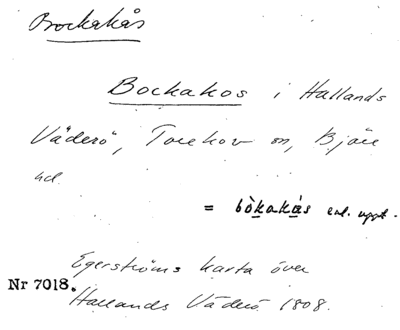 Bockakås
Bockakos i Hallands
Väderö, Torekov sn, Bjäre
hd
= bòkakás enl. uppt.
Egerströms karta över
Nr 7018.
Hallands Väderö 1808.